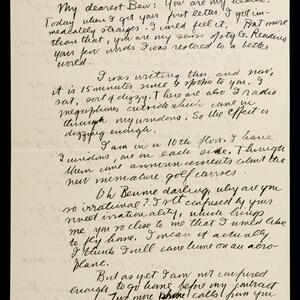 My dearest Baw: You are my
Today when I get your first letter I got im-
mediately straiges. I could feel it. But more
than that, you are my sense of style. Reading
your few words I was restored to a better
world.
I was writing this and now,
it is 15 minutes since I spoke to you. I am
out, sort of dizzy. There are also 2 radio
megaphones outside which came in
through my windows. So the effect is
dizzying enough.
I am on a 10th floor. I have
2 windows, one on each side. Through
them come announcements about the
new miniature golf carves.
Oh Bennie darling, why are you
so irrational? I get confused by your
sweet irrationality, which brings
me you so close to me that I would like
to fly home. I mean it actually.
I think I will come home on an aero-
plane.
But as yet I am not confused
enough to go home before my contract
Two more phone calls from you